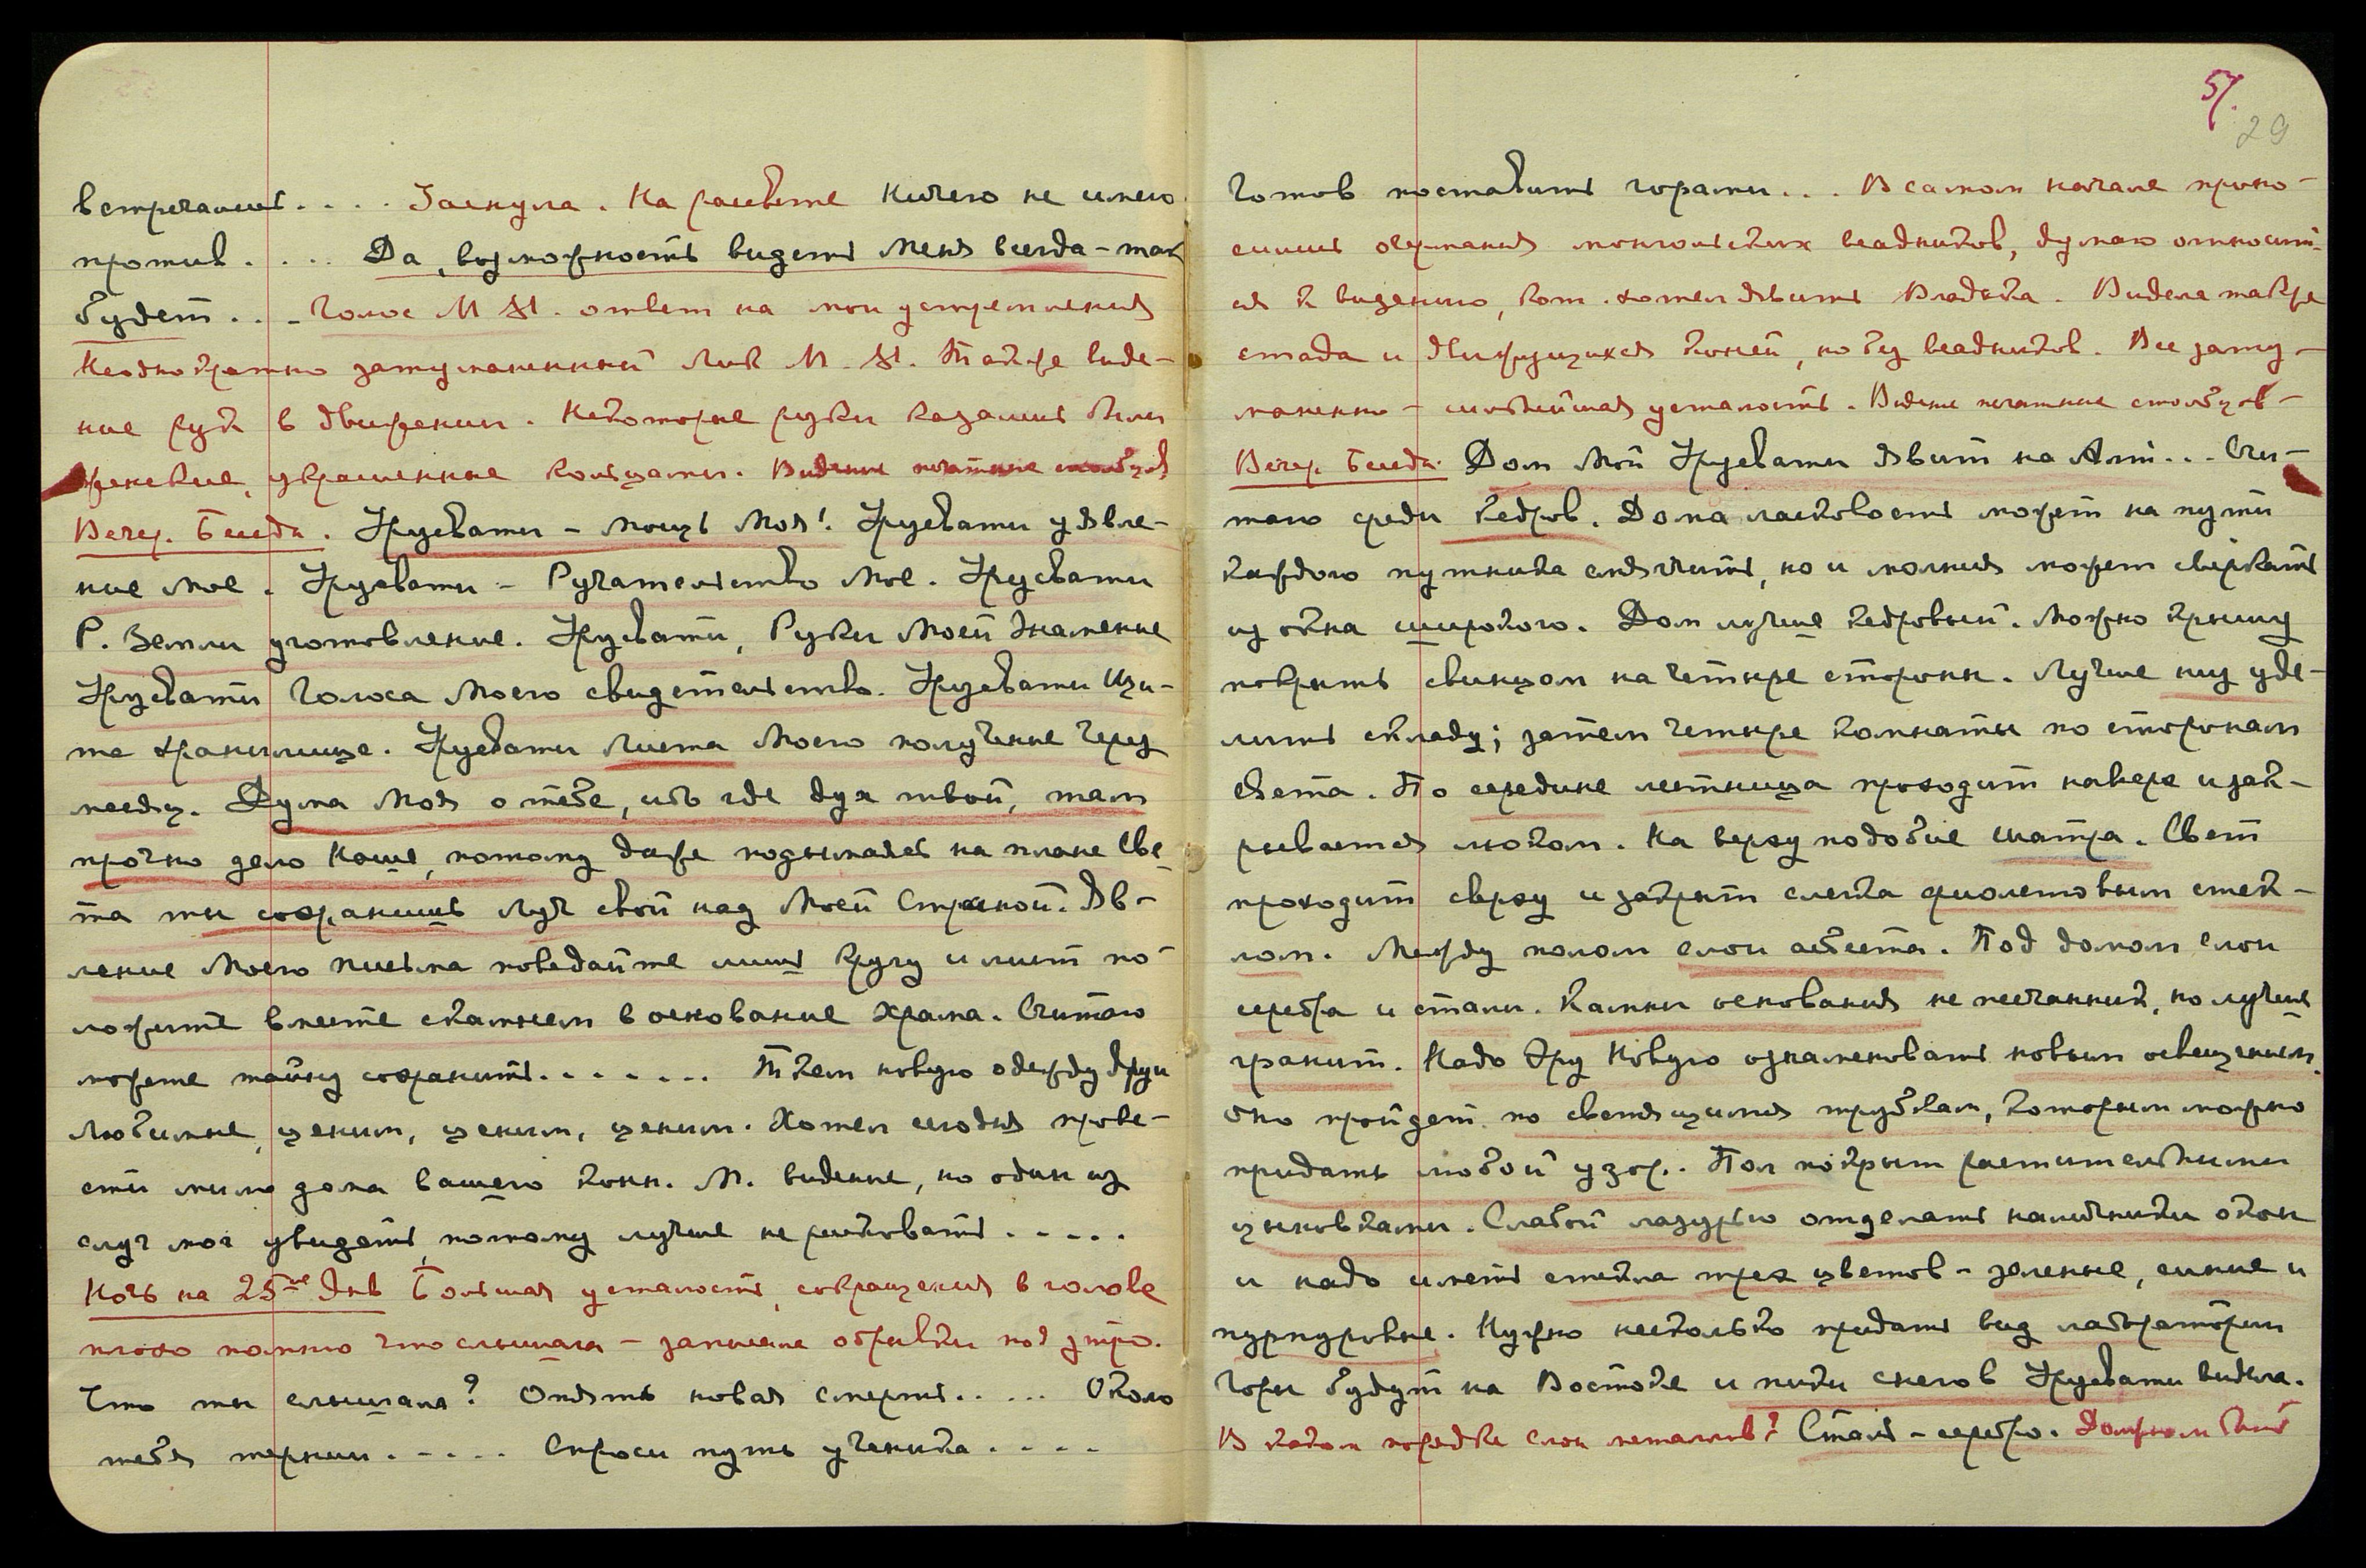 встречались . . . . Заснула. На рассвете Ничего не имею
против . . . . Да, возможность видеть Меня всегда – так
будет . . . Голос М. М. ответ на мои устремления
Неоднократно затуманенный Лик М. М. Также виде-
ние рук в движении. Некоторые руки казались были
женские, украшенные кольцами. Видение печатные столбцов
Вечер. Беседа. Урусвати – мощь Моя! Урусвати удивле-
ние Мое. Урусвати – Ручательство Мое. Урусвати
Р. Земли уготовление. Урусвати, Руки Моей Знамение
Урусвати Голоса Моего свидетельство. Урусвати Щи-
та хранилище. Урусвати Листа Моего получение через
месяц. Дума Моя о тебе, ибо где дух твой, там
прочно дело Наше, потому даже подымаясь на плане Све-
та ты сохранишь луч свой над Моей Страной. Яв-
ление Моего письма поведайте лишь кругу и лист по-
ложите вместе с камнем в основание Храма. Считаю
можете тайну сохранить. . . . . . . Ткем новую одежду други
Любимые, ценим, ценим, ценим. Хотел сегодня прове-
сти мимо дома вашего конн. М. видение, но один из
слуг мог увидеть, потому лучше не рисковать . . . . .
Ночь на 25ое Янв Большая усталость, сокращения в голове
плохо помню что слышала – запишите обрывки под утро.
Что ты слышала? Опять новая смерть . . . . . Около
тебя тернии . . . . . Спроси путь ученика . . . .
57.
29
Готов поставить горами . . . В самом начале проно-
сились очертания монгольских всадников, думаю относить-
ся к видению, кот. хотел явить Владыка. Видела также
стада и движущихся коней, но без всадников. Все зату-
манено – сильнейшая усталость. Видение печатные столбцов –
Вечер. Беседа. Дом Мой Урусвати явит на Алт... Счи-
таю среди кедров. Дома ласковость может на пути
каждого путника смягчить, но и молния может сверкать
из окна широкого. Дом лучше кедровый. Можно крышу
покрыть свинцом на четыре стороны. Лучше низ уде-
лить складу; затем четыре комнаты по сторонам
света. По середине лестница проходит наверх и зак-
рывается люком. На верху подобие шатра. Свет
проходит сверху и закрыт слегка фиолетовым стек-
лом. Между полом слои асбеста. Под домом слои
серебра и стали. Камни основания не песчанник, но лучше
гранит. Надо Эру Новую ознаменовать новым освещеньем.
Оно пройдет по светящимся трубкам, которым можно
придать любой узор. Пол покрыт растительными
цыновками. Слабой лазурью отделать наличники окон
и надо иметь стекла трех цветов – зеленые, синие и
пурпуровые. Нужно несколько придать вид лаборатории
Горы будут на Востоке и пики снегов Урусвати видела.
В каком порядке слои металлов? Сталь – серебро. Должны ли быть